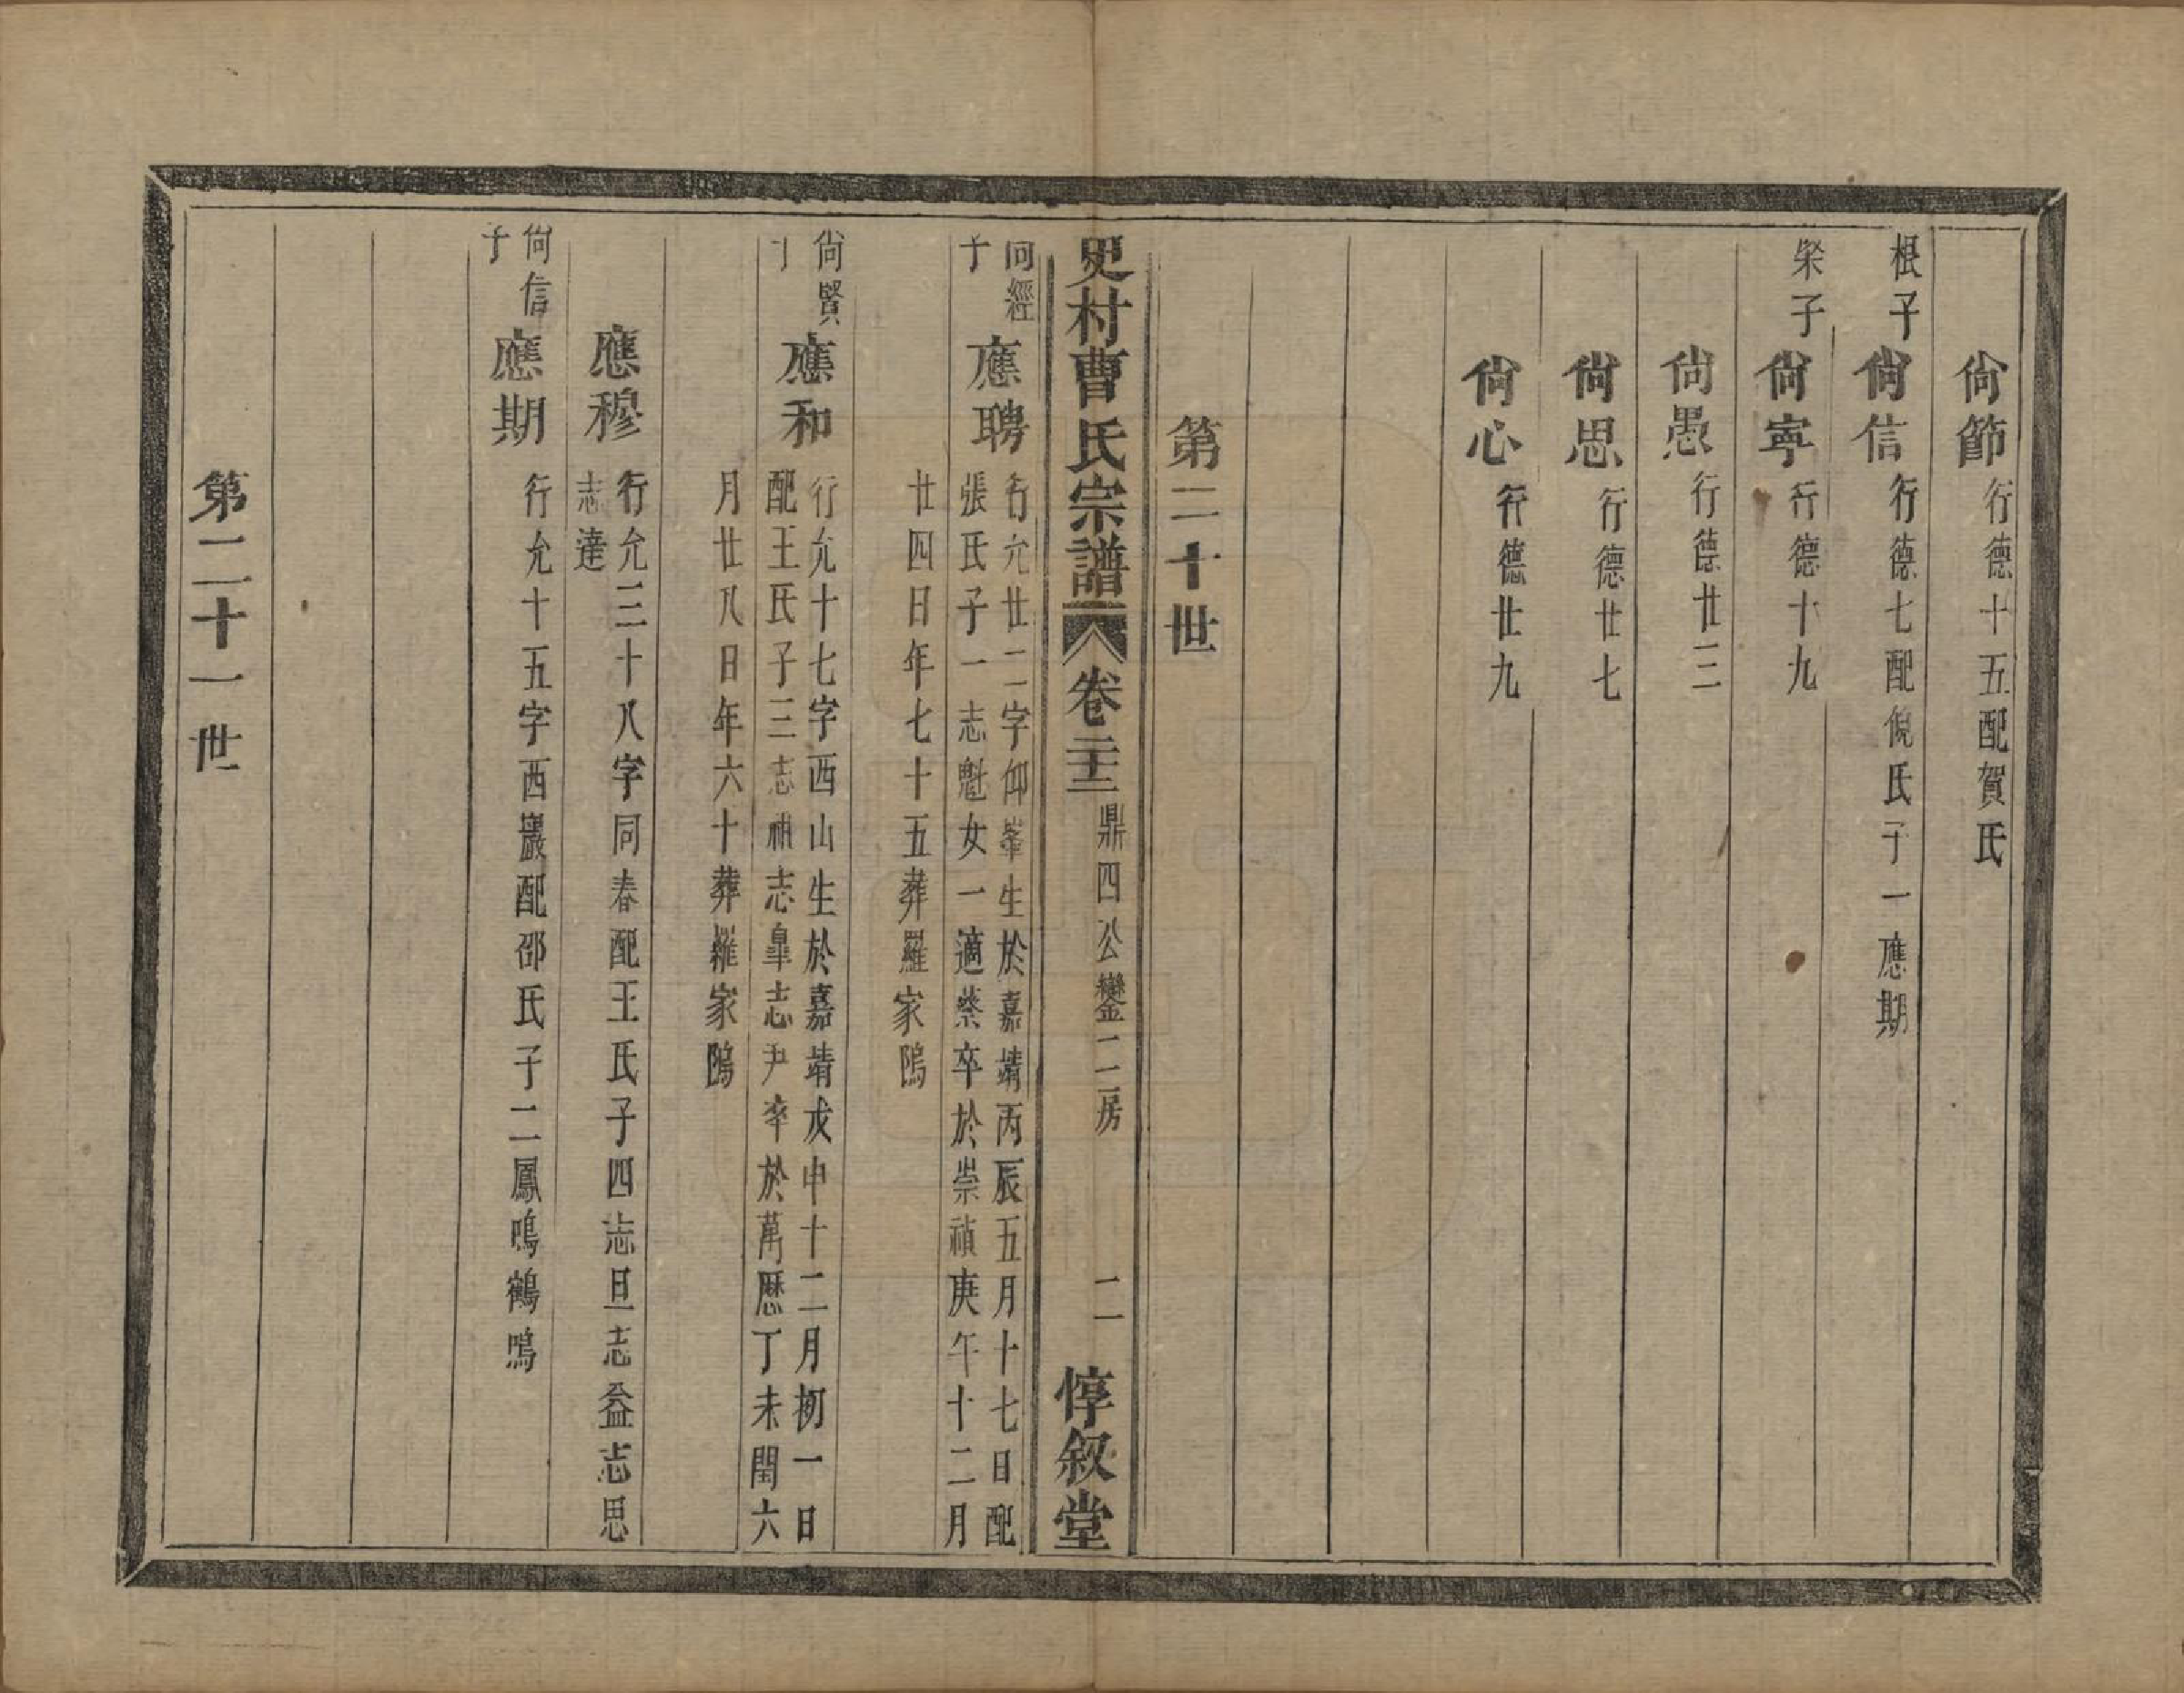 尙節 行德十五配賀氏
根子 尙信 行德七配倪氏子一應期
榮子 尙寧 行德十九
尙愚 行德廿三
尙思 行德廿七
尙心 行德廿九
第二十世
史村曹氏宗譜 卷二十三 鼎四公鑾二房 二 惇叙堂
尙經子 應聘 行允廿二字仰峯生於嘉靖丙辰五月十七日配
張氏子一志魁女一適蔡卒於崇禎庚午十二月
廿四日年七十五葬羅家隝
尙賢子 應和 行允十七字西山生於嘉靖戊申十二月初一日
配王氏子三志補志臯志尹卒於萬歷丁未閏六
月廿八日年六十葬羅家隝
應穆 行允三十八字同春配王氏子四志旦志益志思
志達
尙信子 應期 行允十五字西巖配邵氏子二鳳鳴鶴鳴
第二十一世